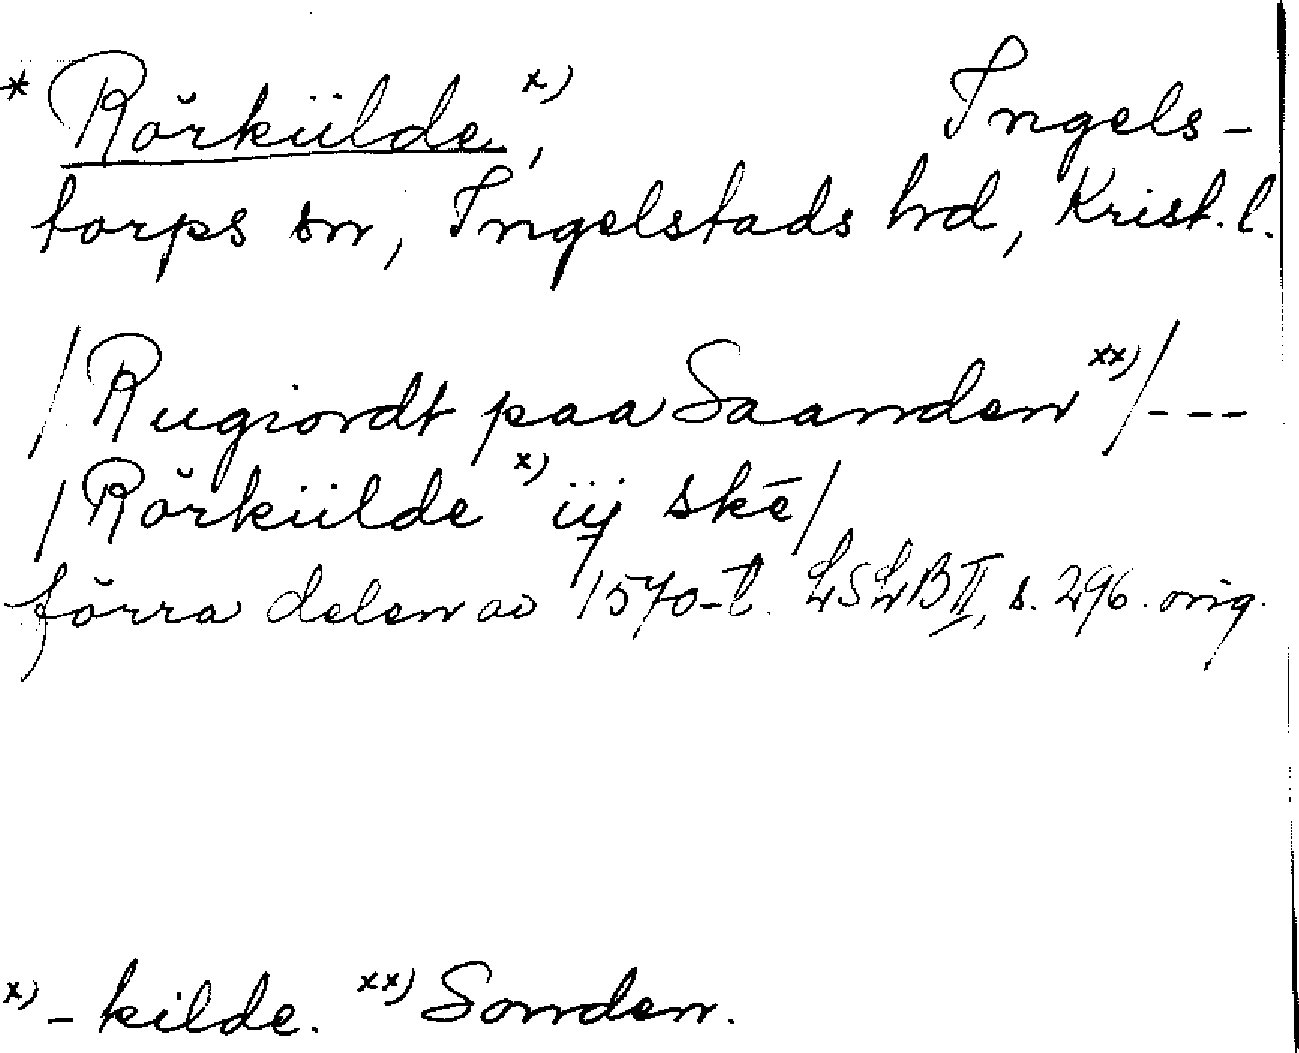 * Rörkiilde x), Ingels-
torps sn, Ingelstads hd, Krist. l.
/Rugiordt paa Saanden xx)/---
/Rörkiilde x) iij skē/
förra delen av 1570-t. LSLB II, s. 296. orig.
x) -kilde. xx) Sonden.